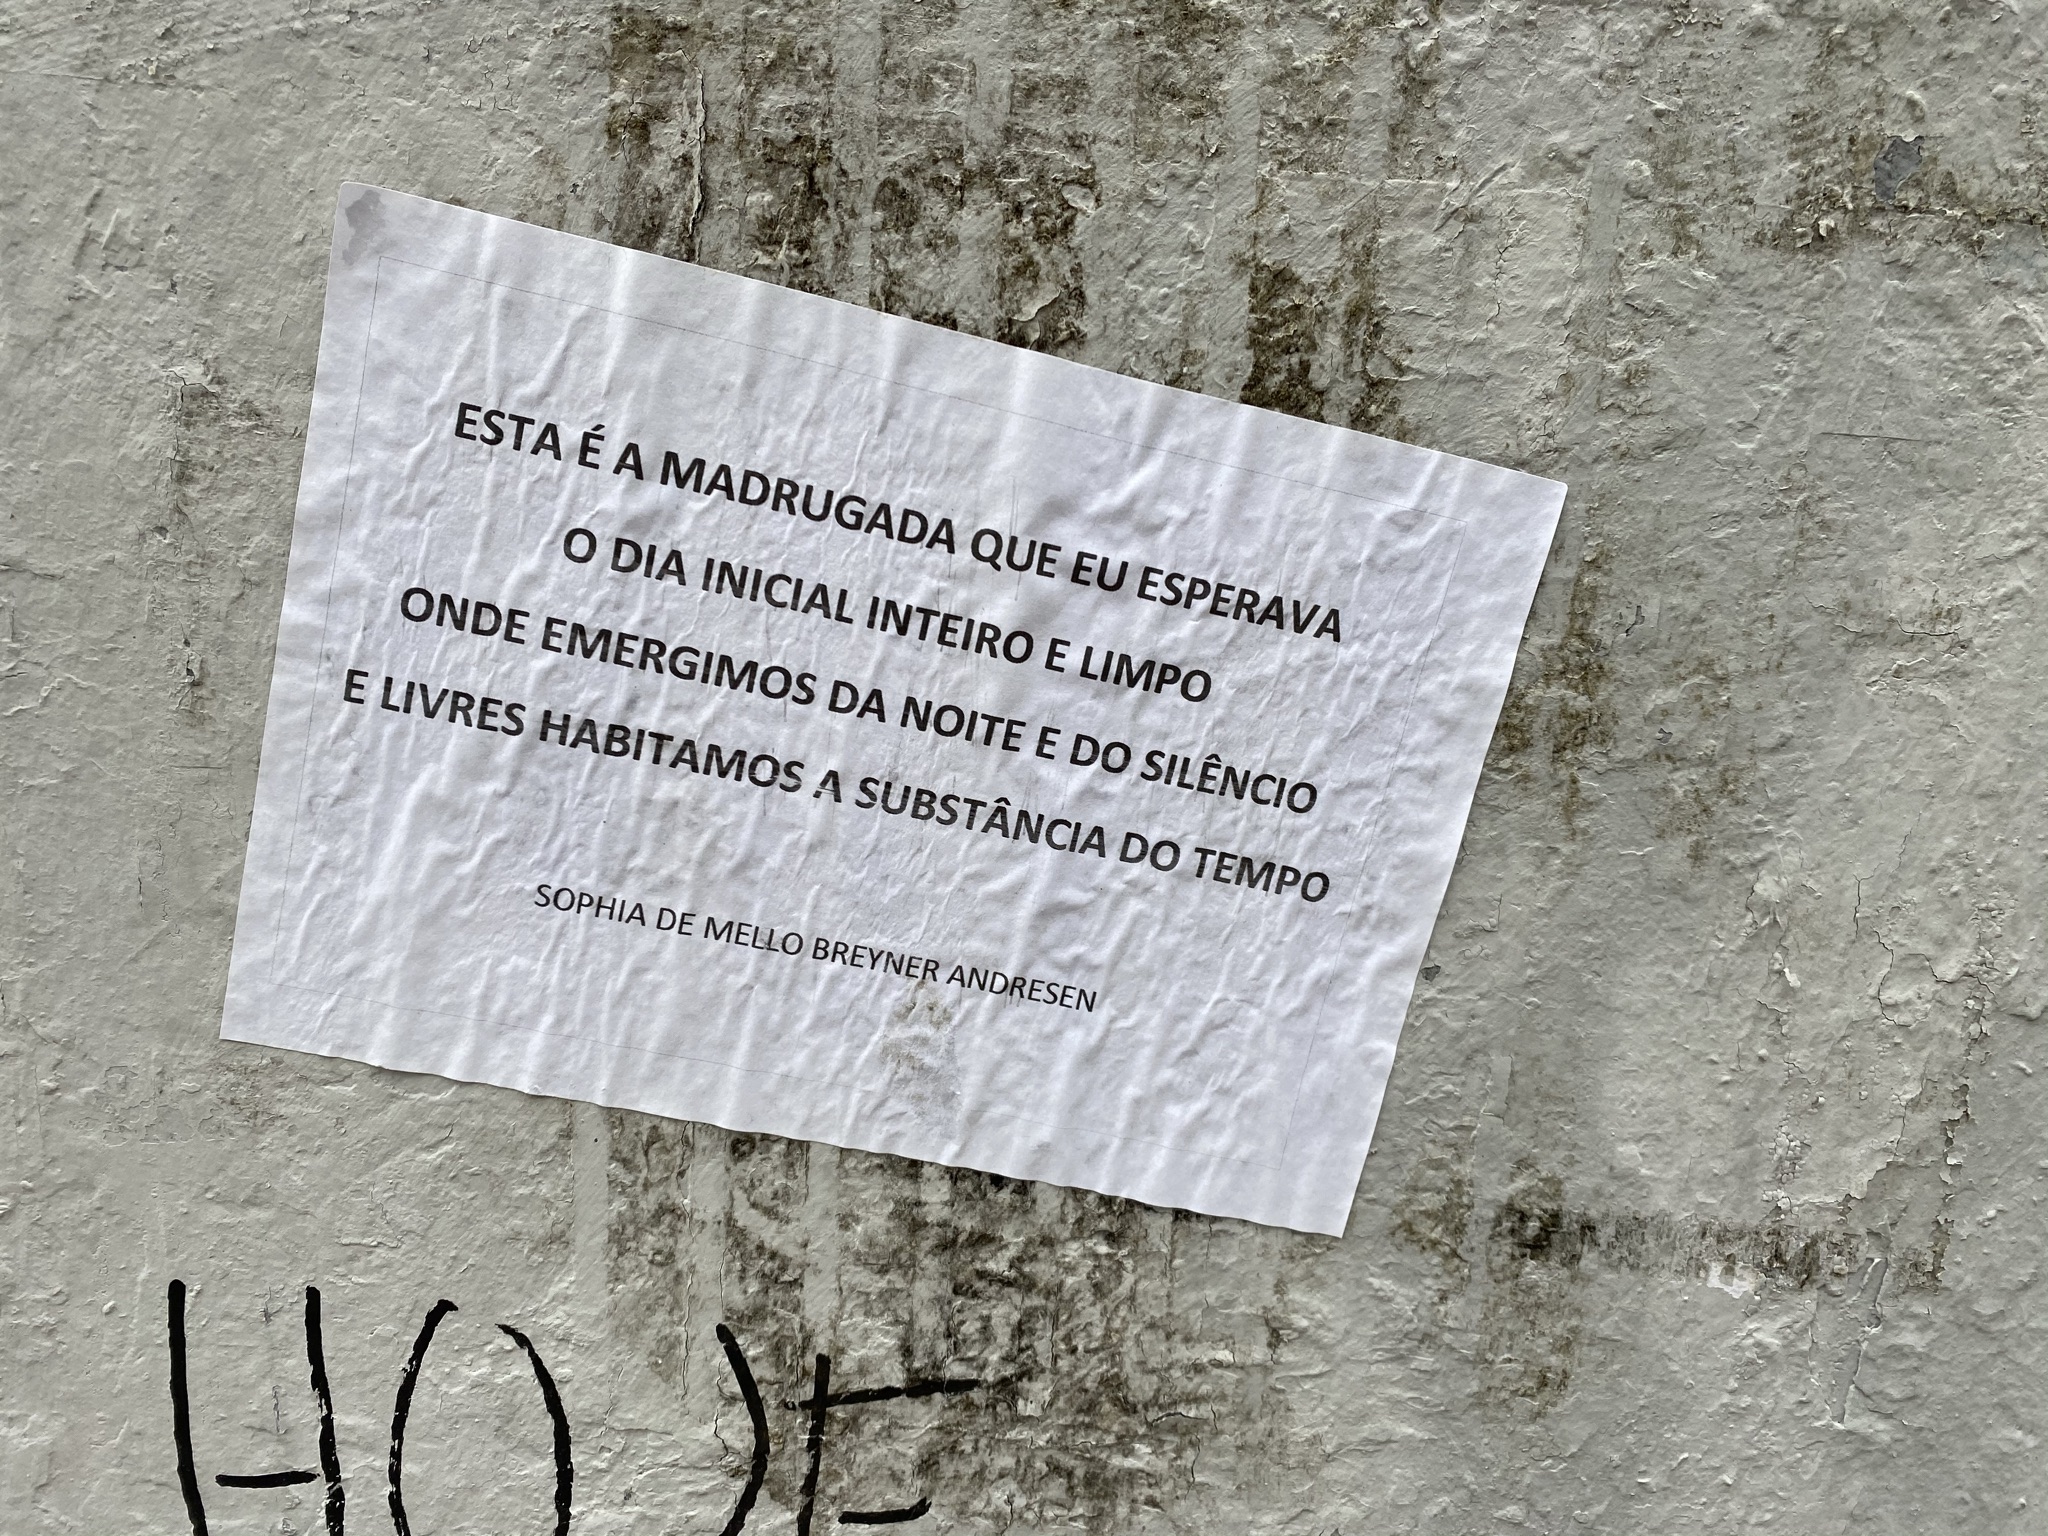 ESTA É A MADRUGADA QUE EU ESPERAVA
O DIA INICIAL INTEIRO E LIMPO
ONDE EMERGIMOS DA NOITE E DO SILÊNCIO
E LIVRES HABITAMOS A SUBSTÂNCIA DO TEMPO
SOPHIA DE MELLO BREYNER ANDRESEN
HOJE